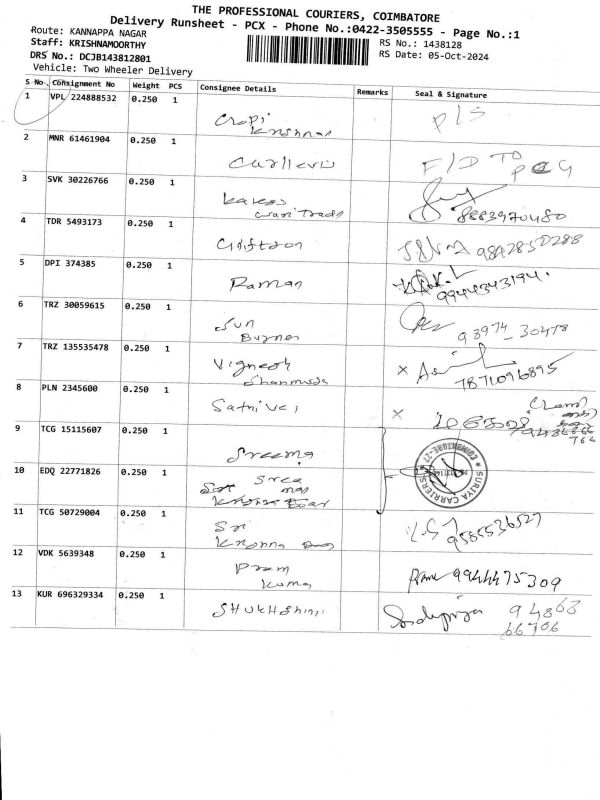 THE PROFESSIONAL COURIERS, COIMBATORE
Delivery Runsheet - PCX - Phone No.:0422-3505555 - Page No.:1
Route: KANNAPPA NAGAR
RS No.: 1438128
Staff: KRISHNAMOORTHY
RS Date: 05-Oct-2024
DRS No.: DCJB143812801
Vehicle: Two Wheeler Delivery
S No Consignment No Weight PCS Consignee Details Remarks Seal & Signature
1 VPL 224888532 0.250 1
P/S
2 MNR 61461904 0.250 1
F/D TO
3 SVK 30226766 0.250 1
8883970480
4 TDR 5493173 0.250 1
9842850288
5 DPI 374385 0.250 1 Raman
9944343194.
6 TRZ 30059615 0.250 1 Sun
93974-30478
7 TRZ 135535478 0.250 1 Vignesh
7871096895
8 PLN 2345600 0.250 1
9 TCG 15115607 0.250 1
SURIYA CARRIERS
10 EDQ 22771826 0.250 1 Sree
11 TCG 50729004 0.250 1 Sri
Krishna
9585536527
12 VDK 5639348 0.250 1 Prem
Kumar
9944475309
13 KUR 696329334 0.250 1
94863
66706